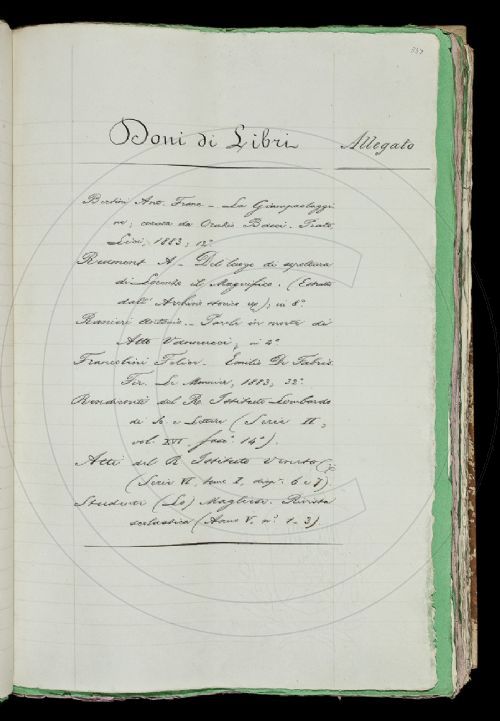 337
Doni di Libri Allegato
Bertini Ant. Franc. - La Giampaolaggi
ne; cicata da Orazio Bacci. Prato
Lici, 1883, 12°
Reumont A. - Del luogo di sepoltura
di Lorenzo il Magnifico. (Estratto
dall' Archivio storico ), in 8°
Ranieri Antonio. - Parole in morte di
Atto Vannucci; in 4°
Franceschini Felice. Emilio De Fabris
Fir. Le Monnier, 1883, 32°
Rendiconti del R. Istituto Lombardo
di Sc. e Lettere (Serie II,
vol. XVI, fasc. 14°)
Atti del R. Istituto Veneto
(Serie VI, tomo I, disp. 6 e 7)
Studente (Lo) Magliese. Rivista
scolastica (Anno V, n.i 1-3)